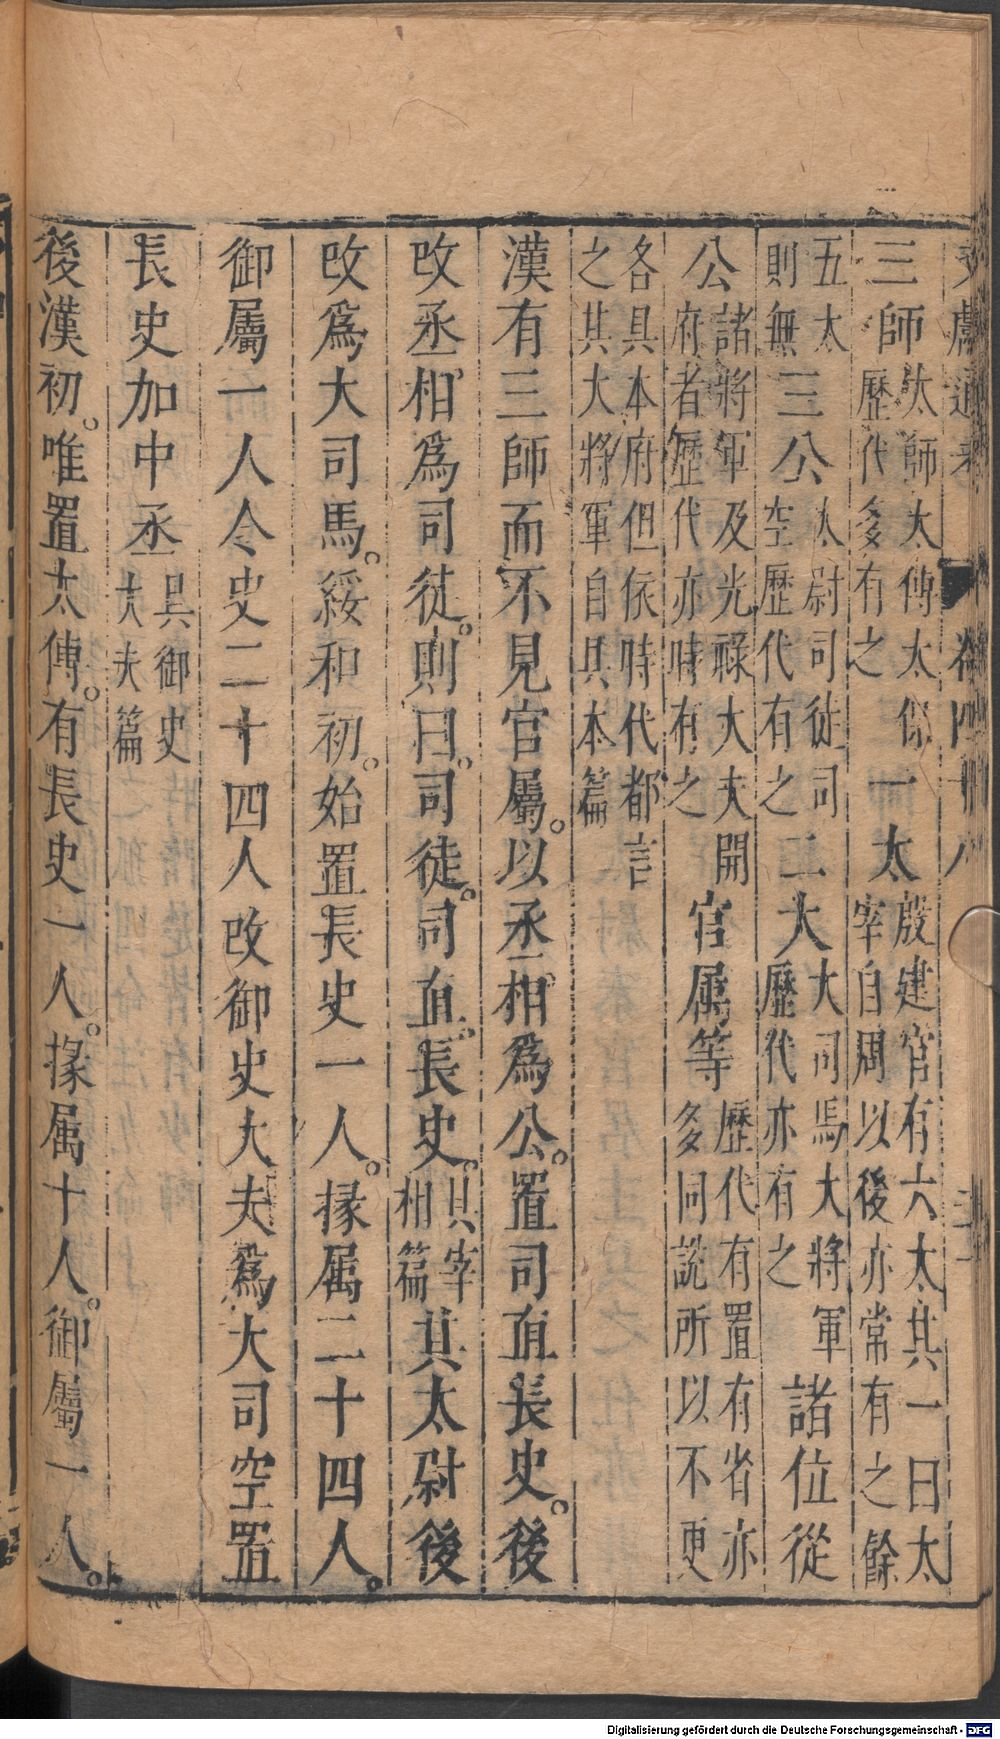 文獻通考 卷四十八 三
三師太師太傅太保歷代多有之一太殷建官有六太其一曰太宰自周以後亦常有之餘
五太則無三公太尉司徒司空歷代有之二大大司馬大將軍歷代亦有之諸位從
公諸將軍及光祿大夫開府者歷代亦時有之官属等歷代有置有省亦多同說所以不更
各具本府但依時代都言之其大將軍自具本篇
漢有三師而不見官屬。以丞相爲公。置司直長史。後
改丞相爲司徒。則曰。司徒。司直。長史。具宰相篇其太尉後
改爲大司馬。綏和初。始置長史一人。掾属二十四人。
御屬一人令史二十四人改御史大夫爲大司空置
長史加中丞具御史大夫篇
後漢初。唯置太傅。有長史一人。掾属十人。御屬一人。
Digitalisierung gefördert durch die Deutsche Forschungsgemeinschaft - DFG